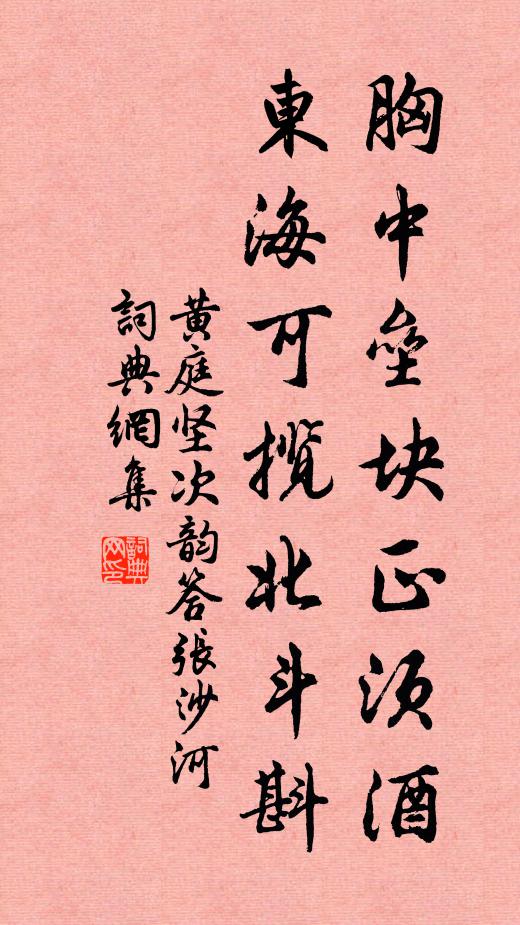 胸中壘块正须酒
東海可揽北斗斟
黄庭坚次韵答張沙河
詞典網集
詞典网印